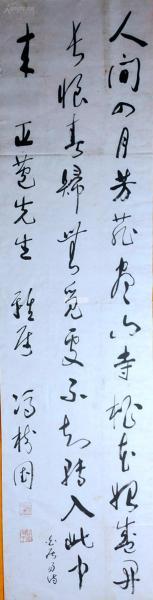 人間四月芳菲盡山寺桃花始盛開
長恨春歸無覓處不知轉入此中
來 先生 雅屬
白居易詩